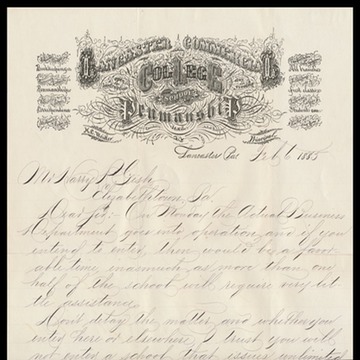 LANCASTER COMMERCIAL
COLLEGE
AND
SCHOOL OF
PENMANSHIP
Bookkeeping
Penmanship
Correspondence
H.C. Weidler
Principal
Lancaster, Pa. Feb. 6 1885
Mr. Harry P. Gish
Elizabethtown, Pa.
Dear Sir:- On Monday the Actual Business
Department goes into operation, and if you
intend to enter, then would be a favor-
able time, inasmuch as more than one
half of the school will require very lit-
tle assistance.
Dont delay the matter, and whether you
enter here or elsewhere, I trust you will
not enter a school that issues unlimited